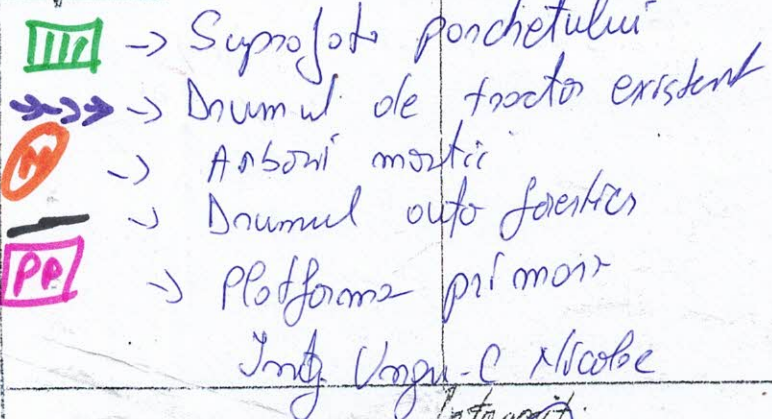 -> Suprafata parchetului
-> Drumul de tractor existent
M -> Arbori mortii
-> Drumul auto forestier
PP -> Platforma primara
Ungu-C Nicolae